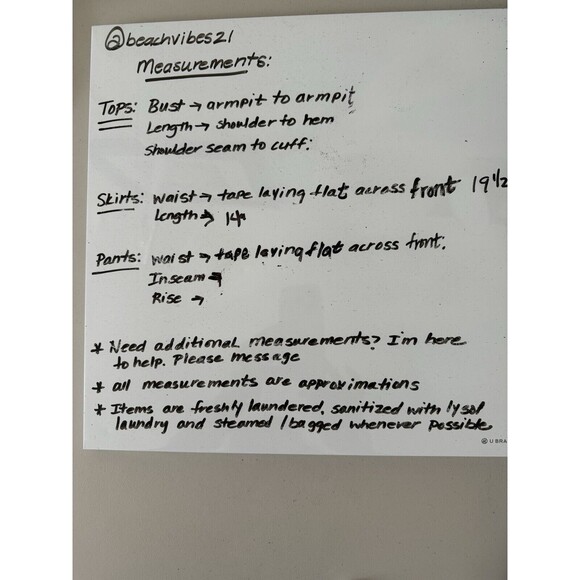 @beachvibes21
Measurements:
Tops: Bust → armpit to armpit
Length → shoulder to hem
Shoulder seam to cuff:
Skirts: waist → tape laying flat across front 19 1/2
Length → 14
Pants: waist → tape laying flat across front.
Inseam →
Rise →
* Need additional measurements? I'm here
to help. Please message
* all measurements are approximations
* Items are freshly laundered, sanitized with lysol
laundry and steamed / bagged whenever possible
U BRA